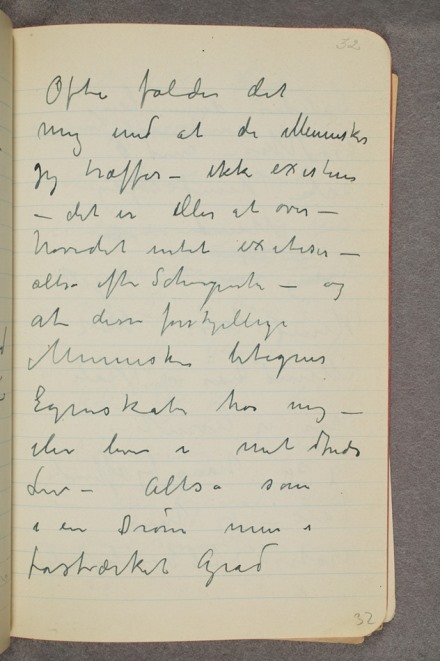 32
Ofte falder det
mig ind at de Mennesker
jeg træffer – ikke existerer
– det er eller at over –
hovedet intet existerer –
altså efter – og
at disse forskjellige
Mennesker betegner
Egenskaber hos mig –
eller i mit
Liv – Altså som
i en Drøm men i
forstærket Grad
32